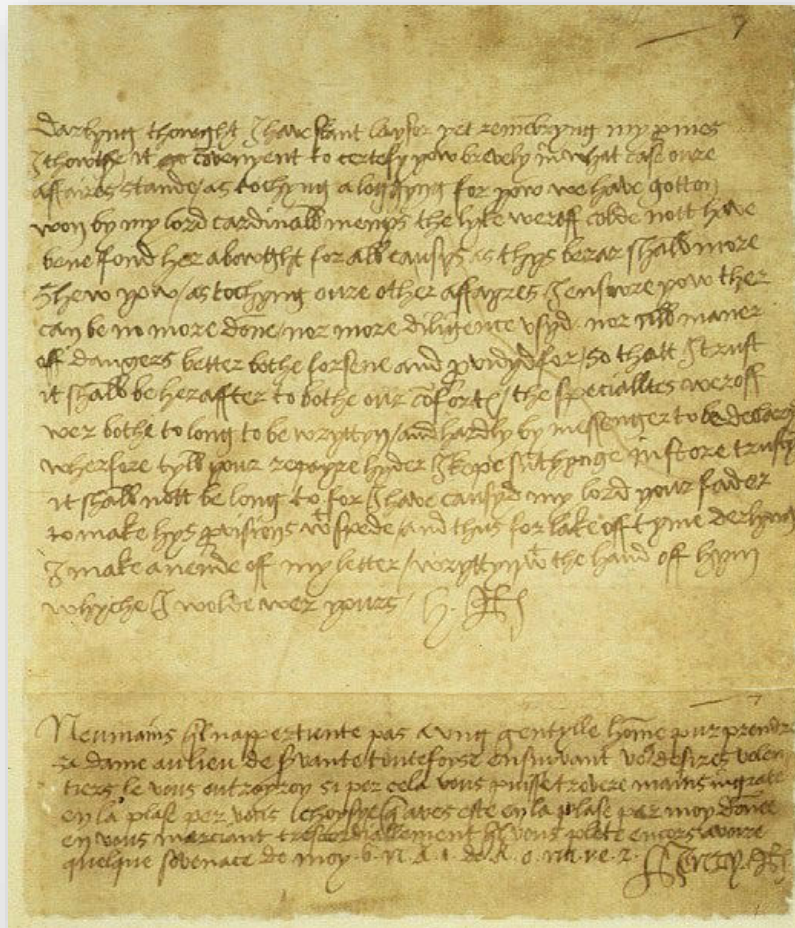 7
Darlyng thowght I have skant laysor yet remembryng my promes
I thowthe it co[n]venyent to certefy yow brevely in what case oure
affaires stande / as tochyng a loggyng for yow we have gotton
won by my lord cardinall menys the lyke weroff colde nott have
bene fond her abowght for all causys as thys berar shall more
shew yow / as tochyng oure other affayres I ensure yow ther
can be no more done nor more diligence usyd nor all maner
off dangers better bothe forsene and providyd for / so thatt I trust
it shall be heraffter to bothe our co[m]forte / the specialltes weroff
wer bothe to long to be wryttyn / and hardly by messenger to be declaryd
wherfore tyll your repayre hyder I kepe sumthynge in store trustyng
it shall nott be long to for I have causyd my lord your fader
to make hys p[ro]visions wt spede / and thus for lake off tyme derlyng
I make an ende off my letter / wryttyn wt the hand off hym
whyche I wolde wer yours / H. R
7
Neumains quil nappertiente pas a ung gentylle home pur prendre
sa dame au lieu de servante toutefoise ensuivant vos desires volen
tiers le vous outroyroy si per cela vous puisse trovere mains ingrate
en la plase per vous choysye que aves este en la plase par moy donée
en vous marciant trescordiallement quil vous plete encors avoire
quelque sovenace de moy . 6 . n . A . 1 . de A . o . na . ve . z .